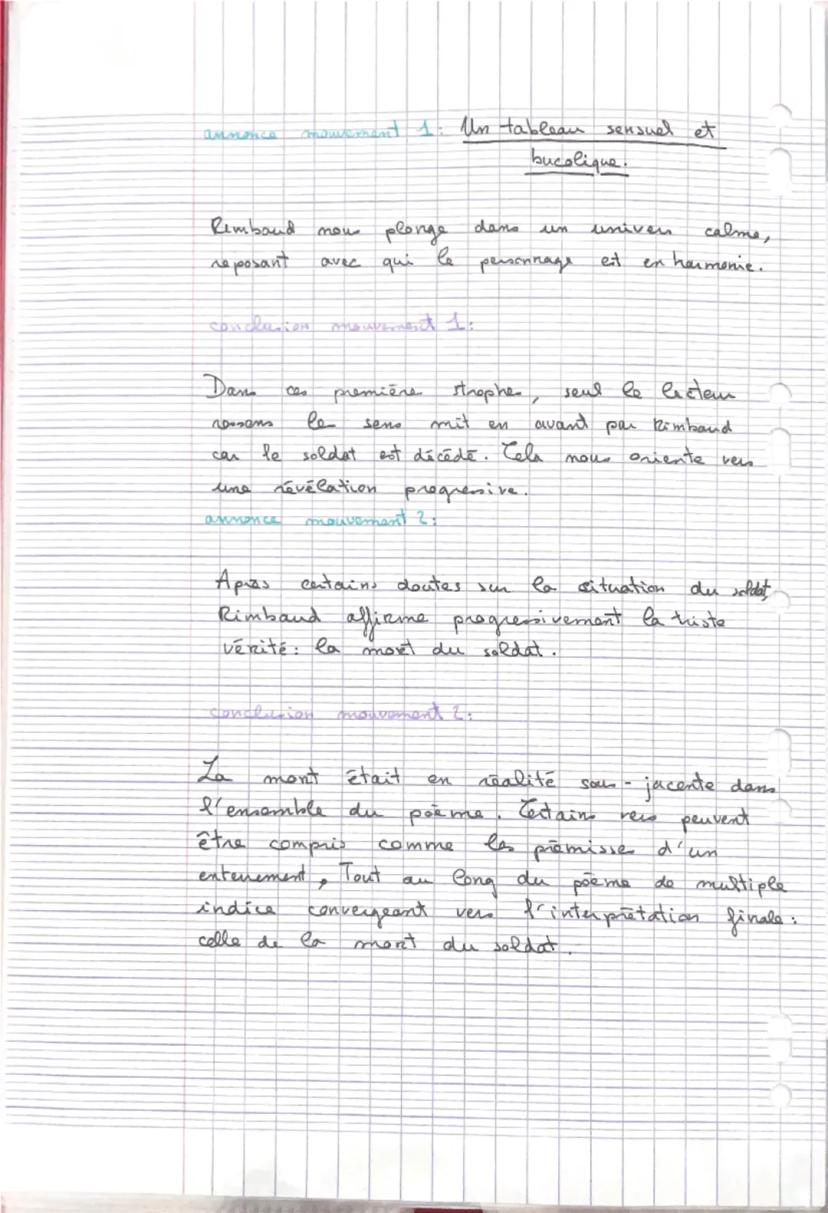 annonce mouvement 1: Un tableau sensuel et
bucolique.
Rimbaud nous plonge dans un univers calme,
reposant avec qui le personnage est en harmonie.
conclusion mouvement 1:
Dans ces première strophe, seul le lecteur
ressens le sens mit en avant par Rimbaud
car le soldat est décédé. Cela nous oriente vers
une révélation progressive.
annonce mouvement 2:
Après certains doutes sur la situation du soldat,
Rimbaud affirme progressivement la triste
vérité: la mort du soldat.
conclusion mouvement 2:
La mort était en réalité sous-jacente dans
l'ensemble du poème. Certains vers peuvent
être compris comme les prémisse d'un
enterrement, Tout au long du poème de multiple
indice convergeant vers l'interprétation finale:
celle de la mort du soldat.